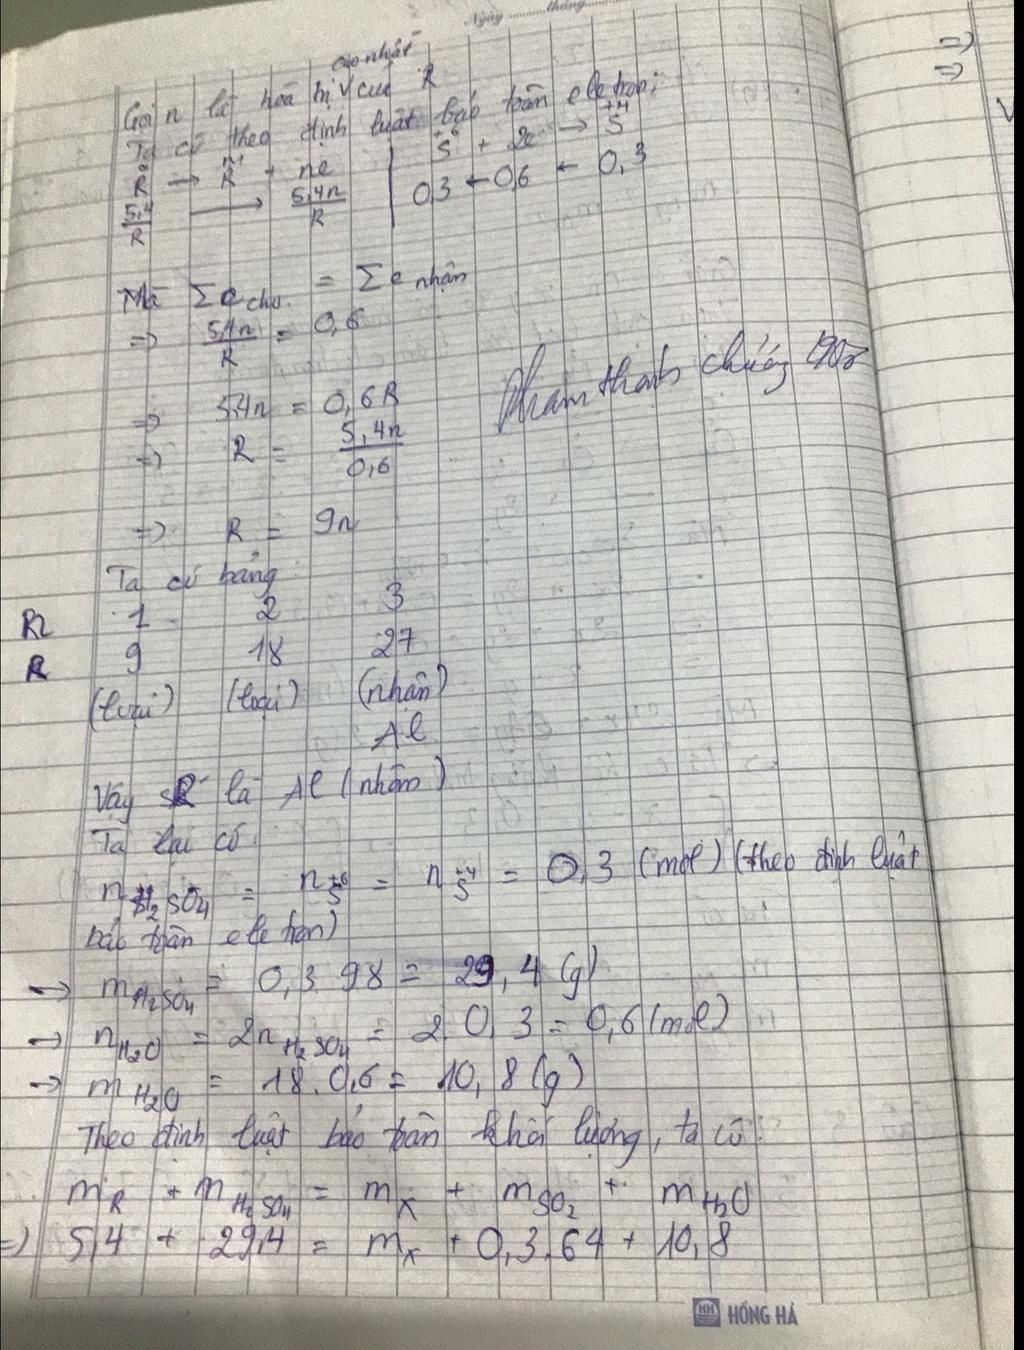 Ngày .......... tháng ..........
cao nhất
Gọi n là hóa trị v của R
Ta có theo định luật bảo toàn eletron:
R⁰ → Rⁿ⁺ + ne | S⁺⁶ + 2e → S⁺⁴
5,4/R → 5,4n/R | 0,3 ← 0,6 ← 0,3
Mà Σe cho = Σe nhận
=> 5,4n/R = 0,6
=> 5,4n = 0,6R
=> R = 5,4n/0,6
Phạm thanh chương
=> R = 9n
Ta có bảng:
n 1 2 3
R 9 18 27
(loại) (loại) (nhận)
Al
Vậy R là Al (nhôm)
Ta lại có
nH₂SO₄ = nS⁺⁶ = nS⁺⁴ = 0,3 (mol) (theo định luật
bảo toàn eletron)
→ mH₂SO₄ = 0,3.98 = 29,4 (g)
→ nH₂O = 2nH₂SO₄ = 2.0,3 = 0,6 (mol)
→ mH₂O = 18.0,6 = 10,8 (g)
Theo định luật bảo toàn khối lượng, ta có:
mR + mH₂SO₄ = mX + mSO₂ + mH₂O
=> 5,4 + 29,4 = mX + 0,3.64 + 10,8
HH HỒNG HÀ
=>
=>
V